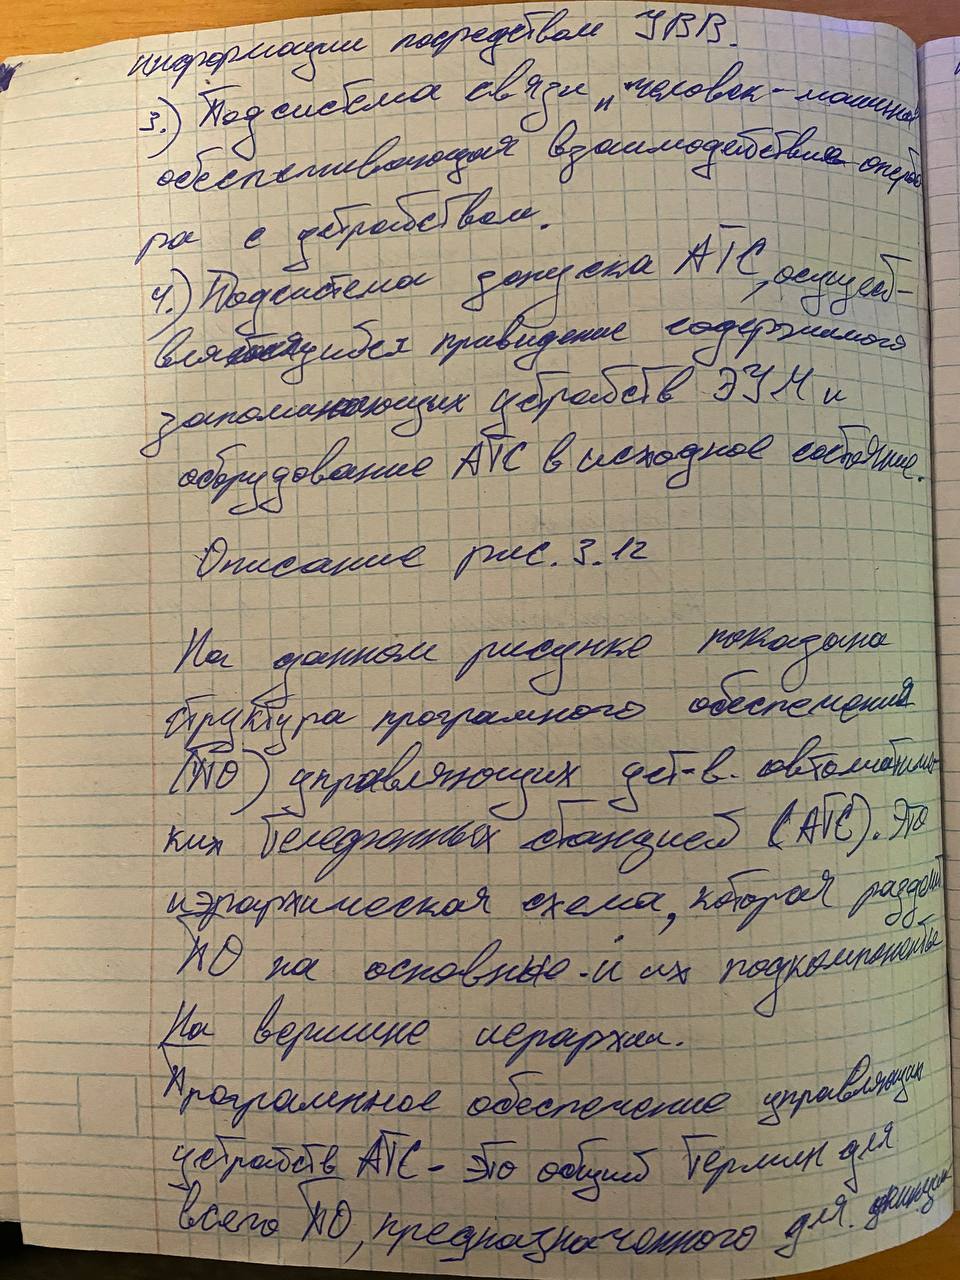 информации посредством УВВ.
3.) Подсистема связи „человек-машина
обеспечивающая взаимодействие операто
ра с устройством.
4.) Подсистема допуска АТС, осущест-
приведение содержимого
запоминающих устройств ЭУМ и
оборудование АТС в исходное состояние.
Описание рис. 3.12
На данном рисунке показана
структура програмного обеспечения
(ПО) управляющих уст-в. автоматичес
ких телефонных станцией (АТС). Это
иэрархическая схема, которая разделяет
ПО на основные и их подкомпоненты
На вершине иерархии.
Програмнное обеспечение управляющих
устройств АТС - это общий термин для
всего ПО, предназначенного для